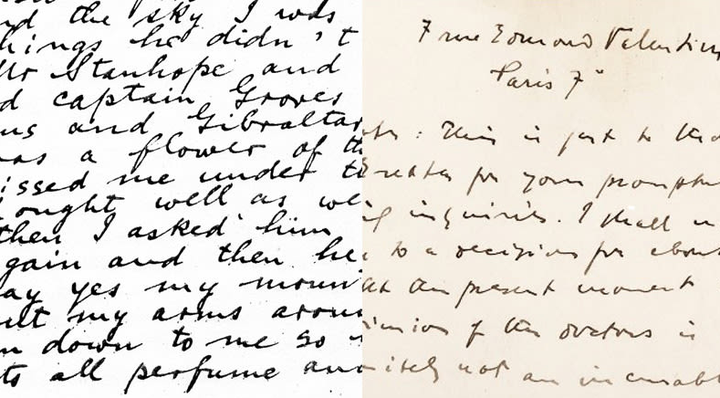 nd the sky I was
hings he didn't
Mr Stanhope and
d captain Groves
us and Gibraltar
as a flower of th
issed me under t
ought well as we
then I asked him
gain and then he
ay yes my moun
ut my arms arou
n down to me so
ts all perfume an
7 rue Edmond Valentin
Paris 7e
This is just to tha
for your prompt
inquiries. I shall
to a decision for about
at the present moment
inion of the doctors is
not an incurabl